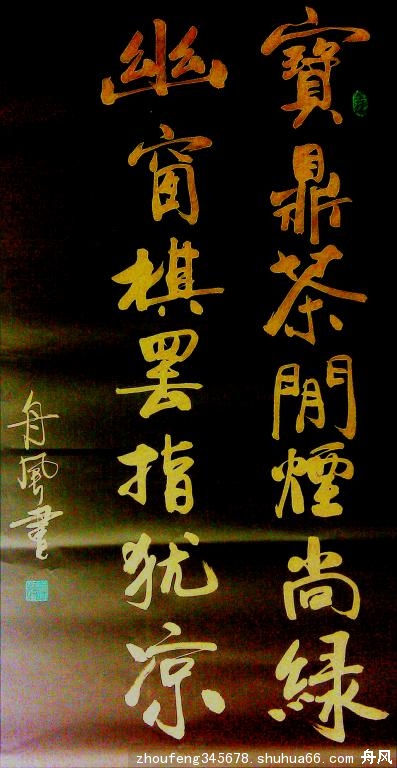 寶鼎茶閒煙尚緑
幽窗棋罢指犹凉
舟風書
zhoufeng345678.shuhua66.com 舟风